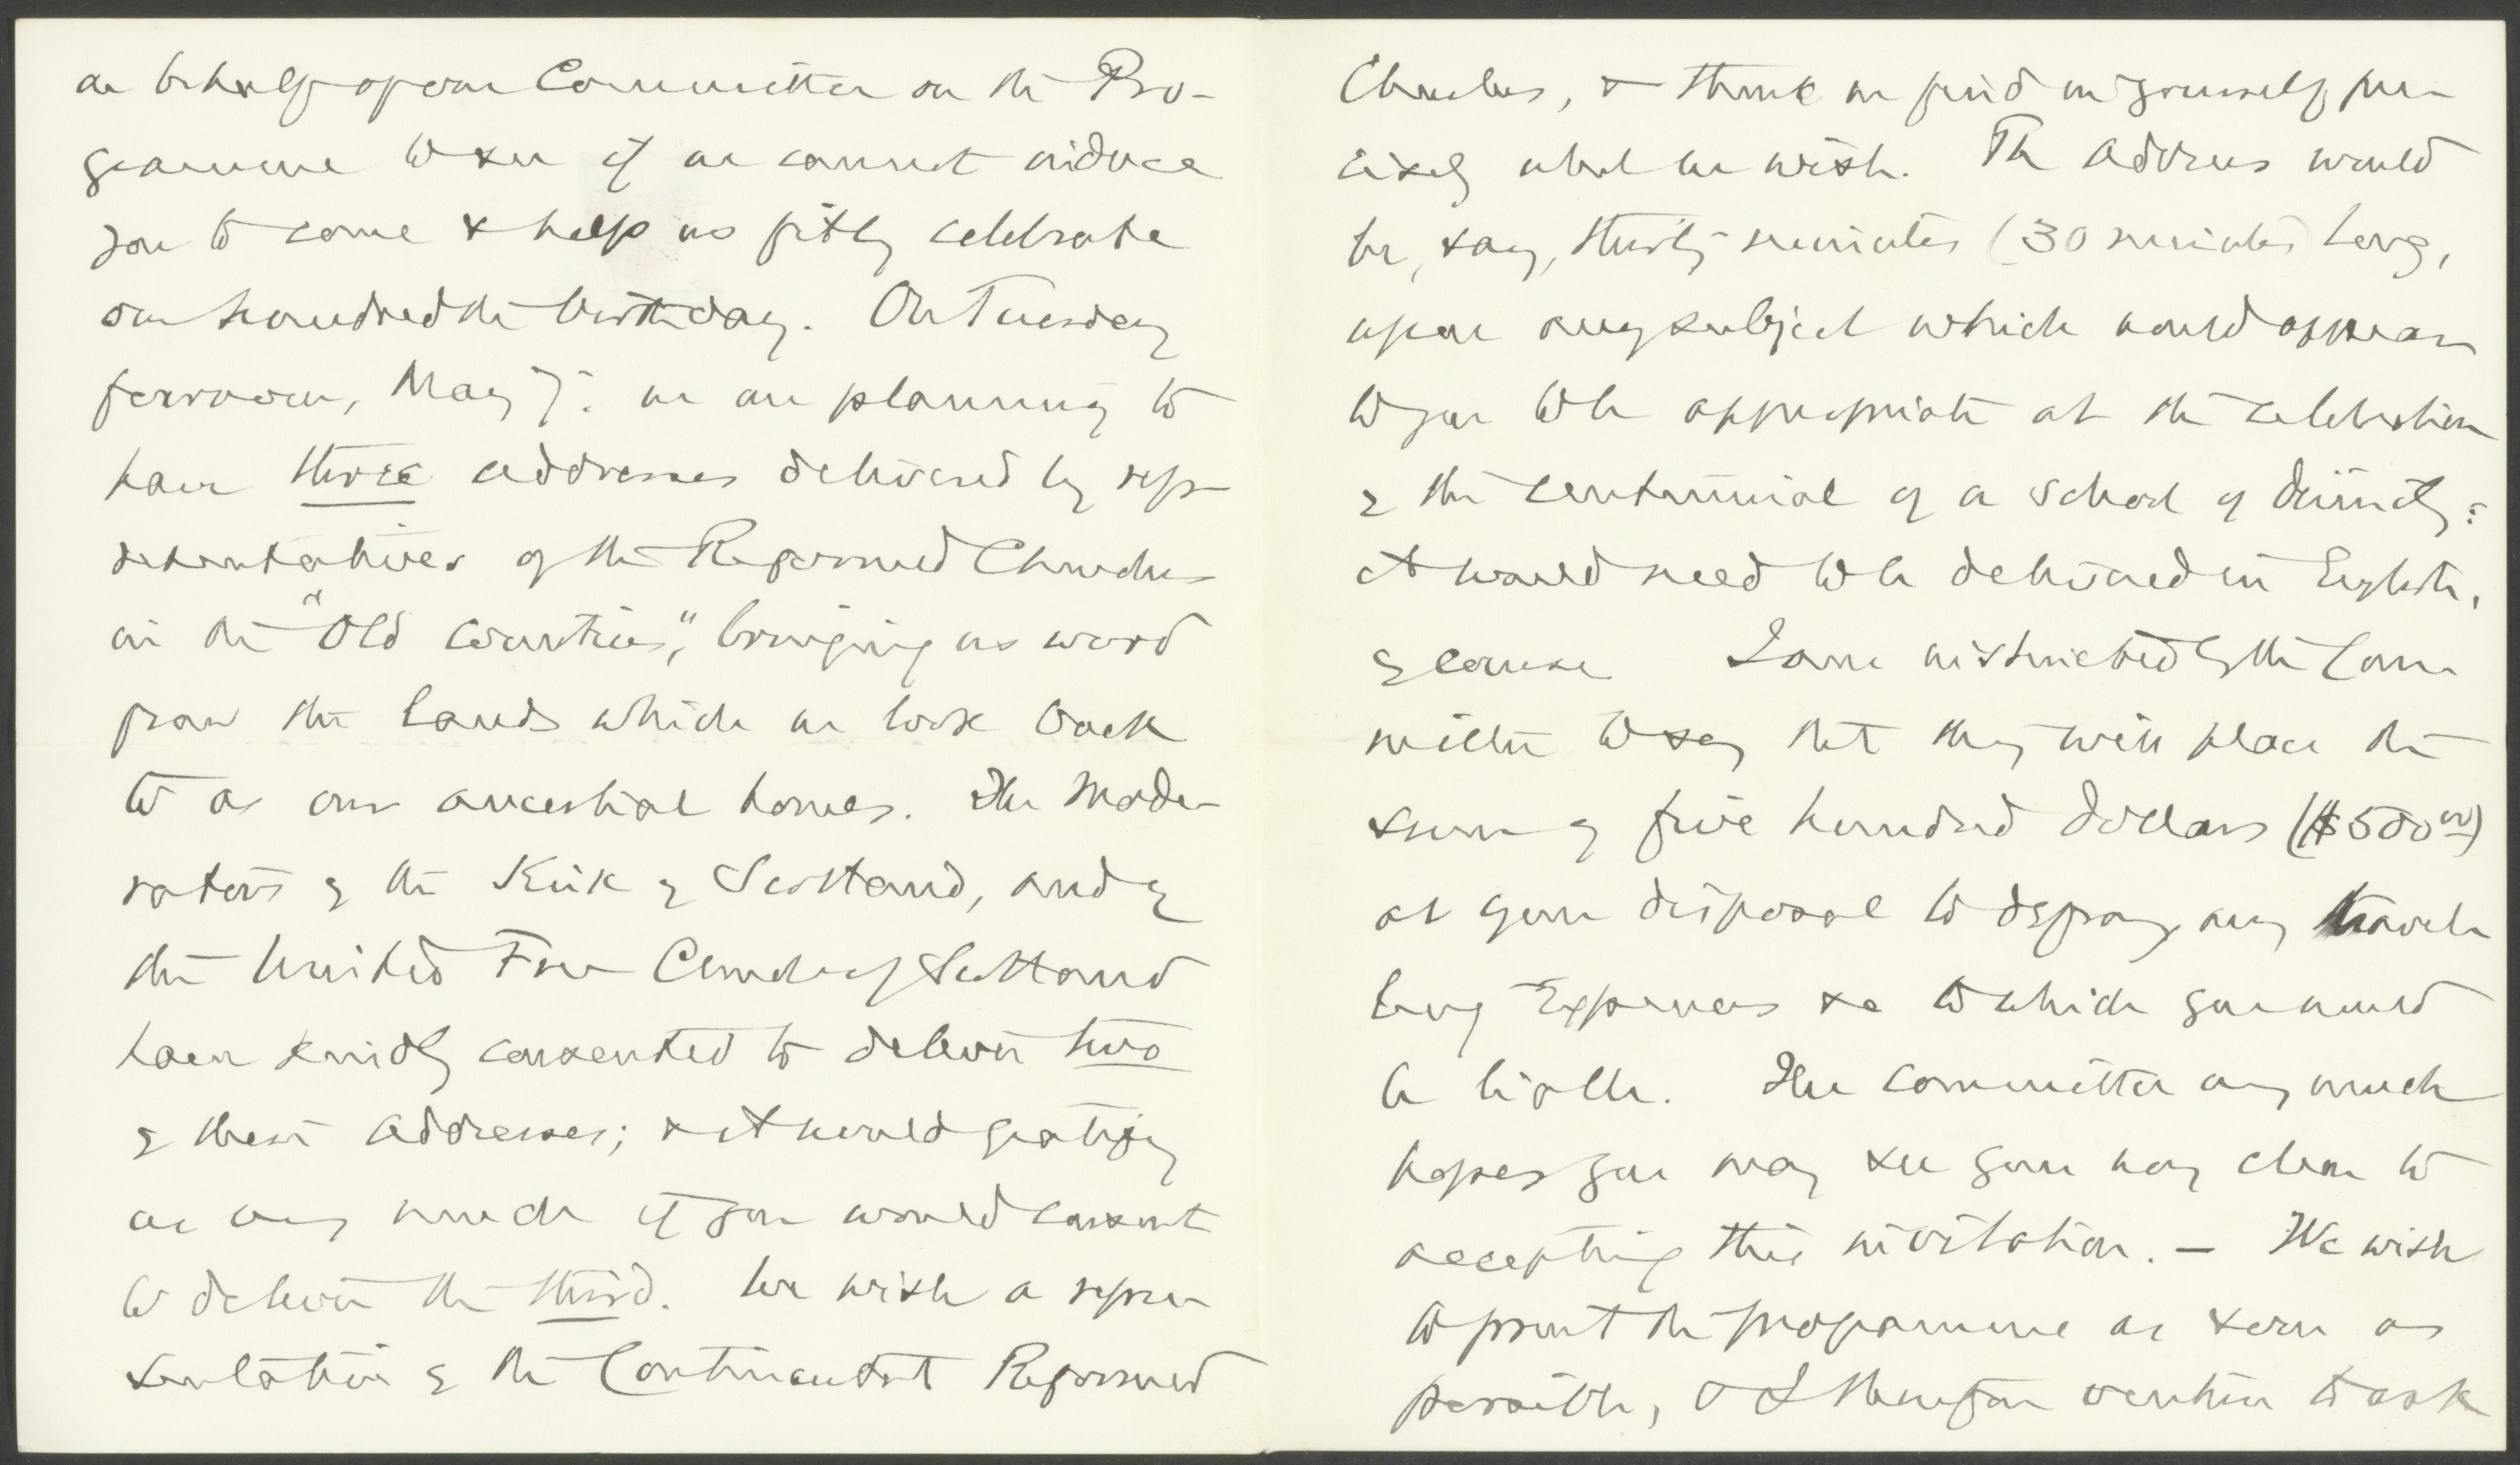 on behalf of our Committee on the Pro-
gramme to see if we cannot induce
you to come & help us fitly celebrate
our hundredth birthday. On Tuesday
forenoon, May 7: we are planning to
have three addresses delivered by rep-
resentatives of the Reformed Churches
in the "Old Countries," bringing us word
from the lands which we look back
to as our ancestral homes. The Mode-
rators of the Kirk of Scotland, and of
the United Free Church of Scotland
have kindly consented to deliver two
of these addresses; & it would gratify
us very much if you would consent
to deliver the third. We wish a repre-
sentative of the Continental Reformed
Churches, & think we find in yourself pre-
cisely what we wish. The address would
be, say, thirty minutes (30 minutes) long,
upon any subject which would appear
to you to be appropriate at the celebration
of the centennial of a school of divinity:
it would need to be delivered in English,
of course. I am instructed by the Com-
mittee to say that they will place the
sum of five hundred dollars ($500.00)
at your disposal to defray any travel-
ling expenses &c to which you would
be liable. The committee very much
hopes you may see your way clear to
accepting this invitation. — We wish
to print the programme as soon as
possible, & I therefore venture to ask